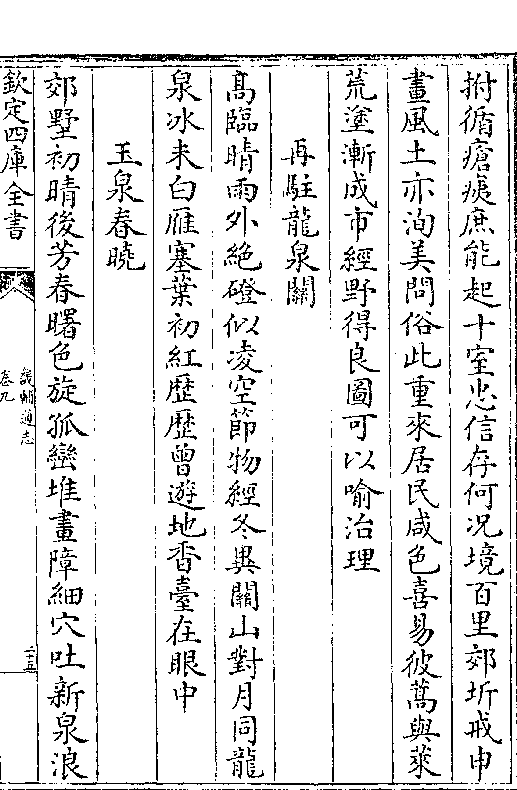 拊循瘡痍庶能起十室忠信存何况境百里郊圻戒申
畫風土亦洵美問俗此重來居民咸色喜易彼蒿與萊
荒塗漸成市經野得良圖可以喻治理
再駐龍泉關
髙臨晴雨外絶磴似凌空節物經冬異關山對月同龍
泉冰未白雁塞葉初紅歴歴曾遊地香臺在眼中
玉泉春曉
郊墅初晴後芳春曙色旋孤巒堆畫障細穴吐新泉浪
欽定四庫全書
畿輔通志
卷九
二十五